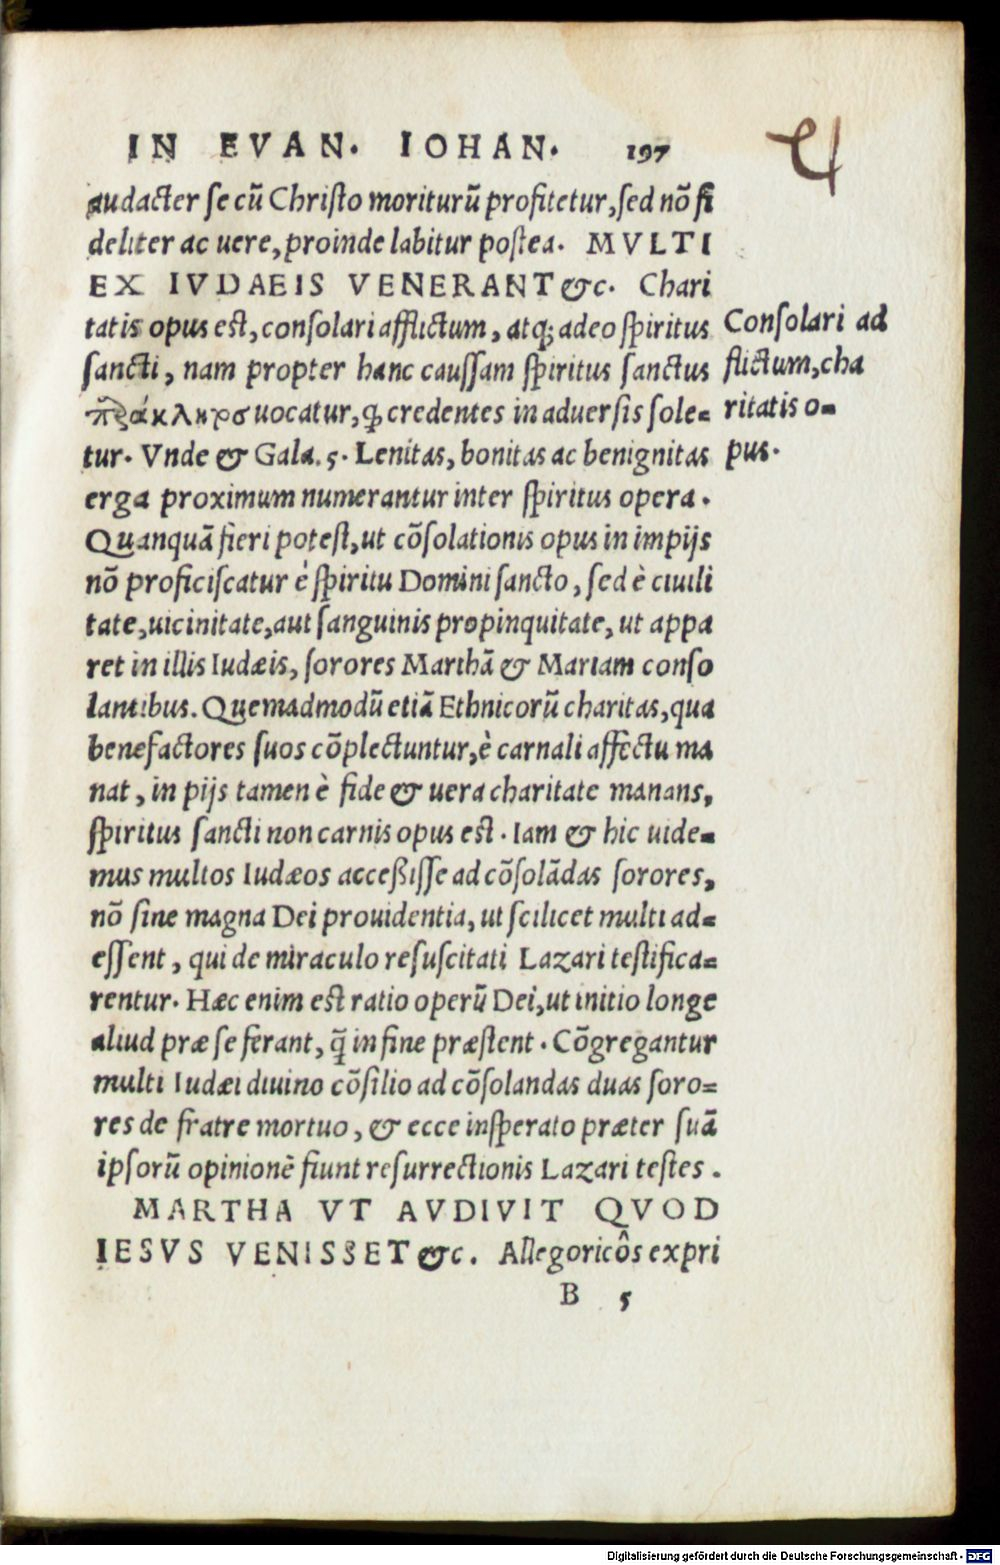 IN EVAN. IOHAN. 197
audacter se cũ Christo moriturũ profitetur, sed nõ fi
deliter ac uere, proinde labitur postea. MVLTI
EX IVDAEIS VENERANT &c. Chari
tatis opus est, consolari afflictum, atq; adeo spiritus
sancti, nam propter hanc caussam spiritus sanctus
uocatur, ꝙ credentes in aduersis sole-
tur. Vnde & Gala. 5. Lenitas, bonitas ac benignitas
erga proximum numerantur inter spiritus opera.
Quanquã fieri potest, ut cõsolationis opus in impijs
nõ proficiscatur è spiritu Domini sancto, sed è ciuili
tate, uicinitate, aut sanguinis propinquitate, ut appa
ret in illis Iudæis, sorores Marthã & Mariam conso
lantibus. Quemadmodũ etiã Ethnicorũ charitas, qua
benefactores suos cõplectuntur, è carnali affectu ma
nat, in pijs tamen è fide & uera charitate manans,
spiritus sancti non carnis opus est. Iam & hic uide-
mus multos Iudæos accessisse ad cõsolãdas sorores,
nõ sine magna Dei prouidentia, ut scilicet multi ad-
essent, qui de miraculo resuscitati Lazari testifica-
rentur. Hæc enim est ratio operũ Dei, ut initio longe
aliud præ se ferant, q̃ in fine præstent. Cõgregantur
multi Iudæi diuino cõsilio ad cõsolandas duas soro-
res de fratre mortuo, & ecce insperato præter suã
ipsorũ opinionẽ fiunt resurrectionis Lazari testes.
MARTHA VT AVDIVIT QVOD
IESVS VENISSET &c. Allegoricôs expri
B 5
Consolari ad
flictum, cha
ritatis o-
pus.
Digitalisierung gefördert durch die Deutsche Forschungsgemeinschaft - DFG